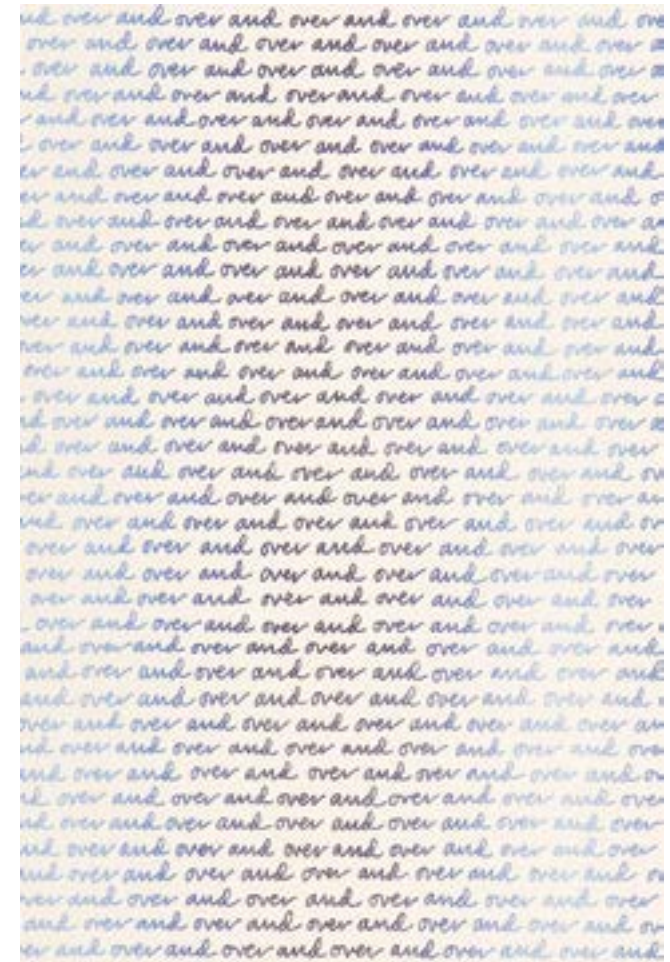 and over and over and over and over and over
over and over and over and over and over
over and over and over and over and over
and over and over and over and over and over
and over and over and over and over and over
over and over and over and over and over and
and over and over and over and over and
and over and over and over and over and
over and over and over and over and over
and over and over and over and over and
and over and over and over and over and
and over and over and over and over and
and over and over and over and over and
over and over and over and over and over and
over and over and over and over and over and
over and over and over and over and over
over and over and over and over and over
over and over and over and over and over
and over and over and over and over and
and over and over and over and over and
and over and over and over and over and over and
over and over and over and over and over and over
over and over and over and over and over
over and over and over and over and over
over and over and over and over and over
and over and over and over and over and over and
and over and over and over and over and over and
and over and over and over and over and over and
over and over and over and over and over and over
and over and over and over and over and over
and over and over and over and over and over and
over and over and over and over and over
over and over and over and over and over and over
and over and over and over and over and over
and over and over and over and over and over and
over and over and over and over and over and over
and over and over and over and over and over and
and over and over and over and over and over and